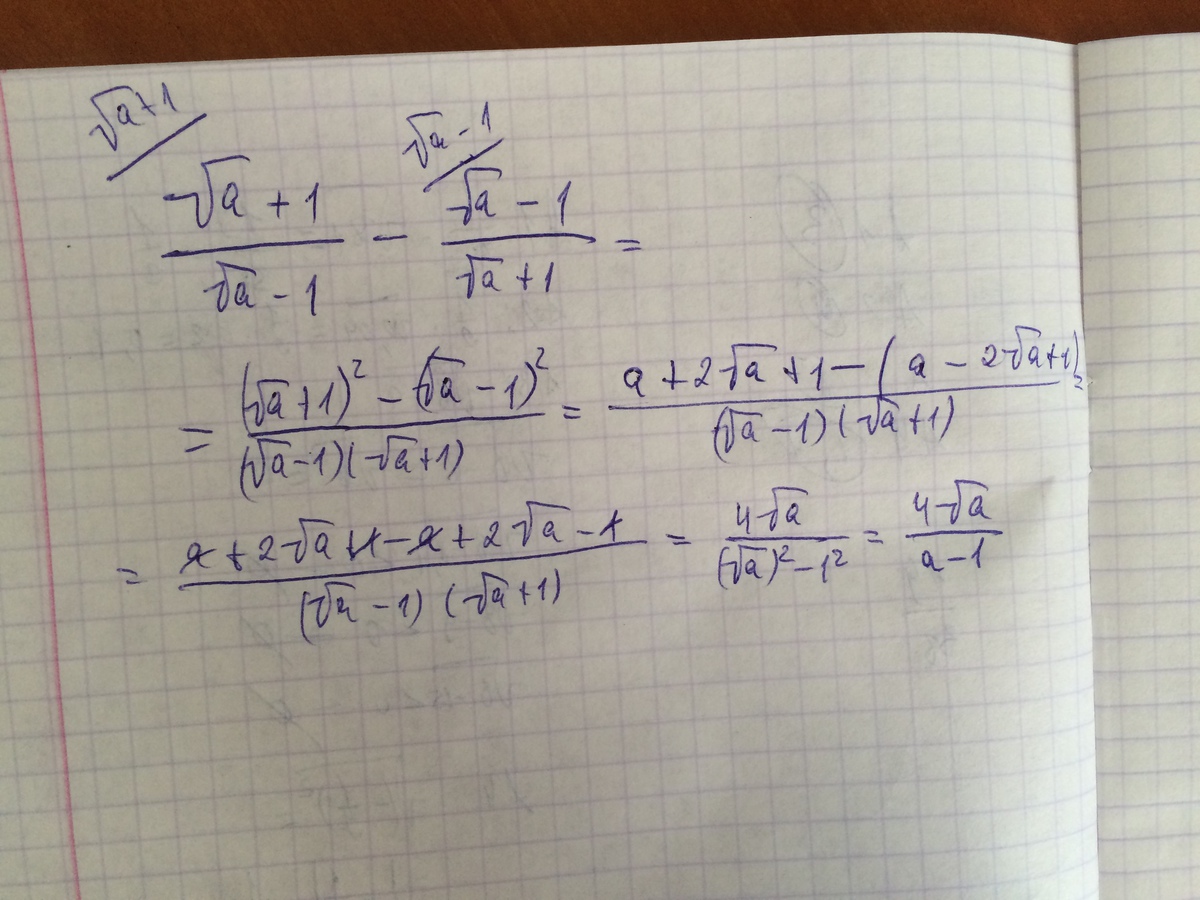 √a+1 √a-1
√a + 1 / √a - 1 - √a - 1 / √a + 1 =
= (√a+1)² - (√a - 1)² / (√a-1)(√a+1) = a + 2√a + 1 - (a - 2√a+1) / (√a - 1)(√a+1) =
= a + 2√a + 1 - a + 2√a - 1 / (√a - 1)(√a+1) = 4√a / (√a)² - 1² = 4√a / a - 1